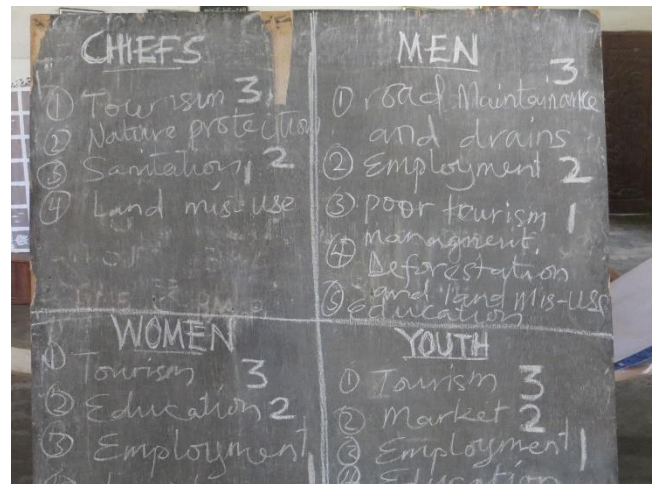 CHIEFS
① Tourism 3
② Nature protection
③ Sanitation 2
④ Land mis-use
MEN
3
① road Maintainance
and drains
② Employment 2
③ poor tourism 1
managment.
④ Deforestation
and land Mis-use
⑤ education
WOMEN
① Tourism 3
② Education 2
③ Employment
YOUTH
① Tourism 3
② Market 2
③ Employment 1
④ Education